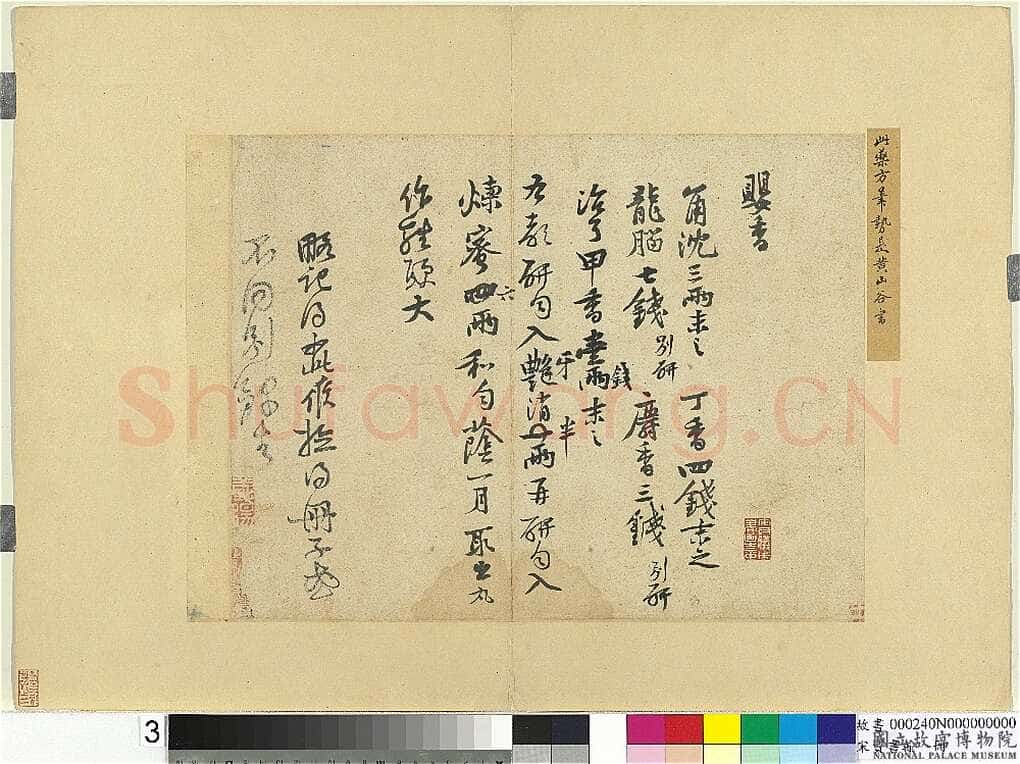 此藥方筆勢是黃山谷書
嬰香
角沈三兩末之 丁香四錢末之
龍腦七錢別研 麝香三錢別研
治了甲香壹兩錢末之
右都研勻入艷消牙半兩再研勻入
煉蜜四六兩和勻蔭一月取出丸
作雞頭大
略記得此候檢得冊子或
不同別錄去
Shufawang.CN
3
故書000240N000000000
國立故宮博物院
NATIONAL PALACE MUSEUM